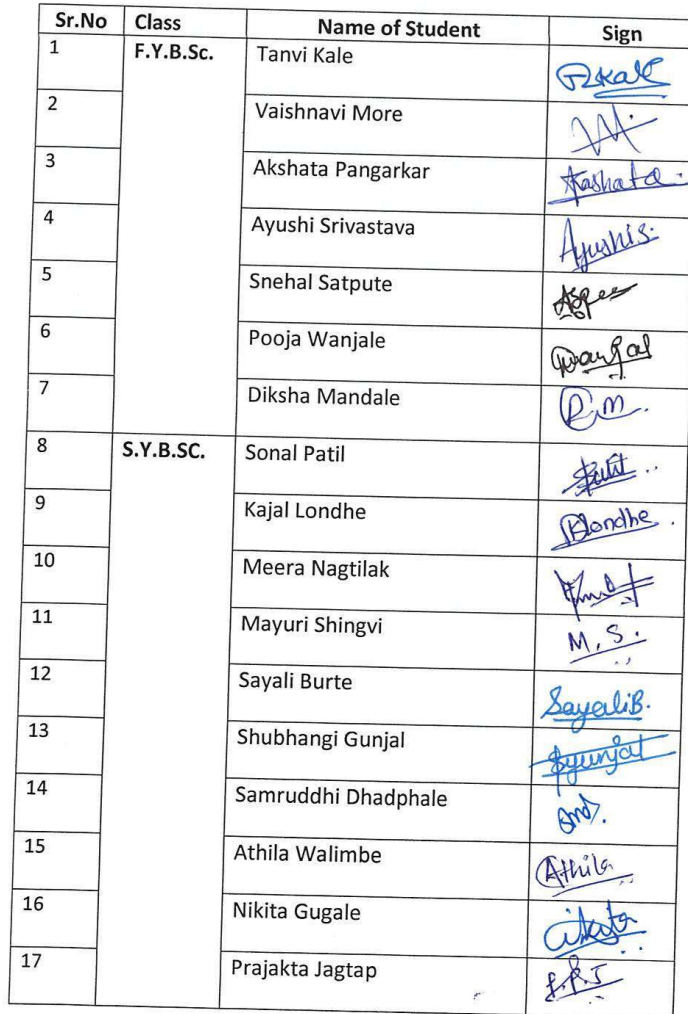 Sr.No Class Name of Student Sign
1 F.Y.B.Sc. Tanvi Kale
2 Vaishnavi More
3 Akshata Pangarkar
4 Ayushi Srivastava Ayushi S.
5 Snehal Satpute
6 Pooja Wanjale
7 Diksha Mandale D.M.
8 S.Y.B.SC. Sonal Patil
9 Kajal Londhe KLondhe.
10 Meera Nagtilak
11 Mayuri Shingvi M.S.
12 Sayali Burte Sayali B.
13 Shubhangi Gunjal
14 Samruddhi Dhadphale
15 Athila Walimbe Athila
16 Nikita Gugale
17 Prajakta Jagtap